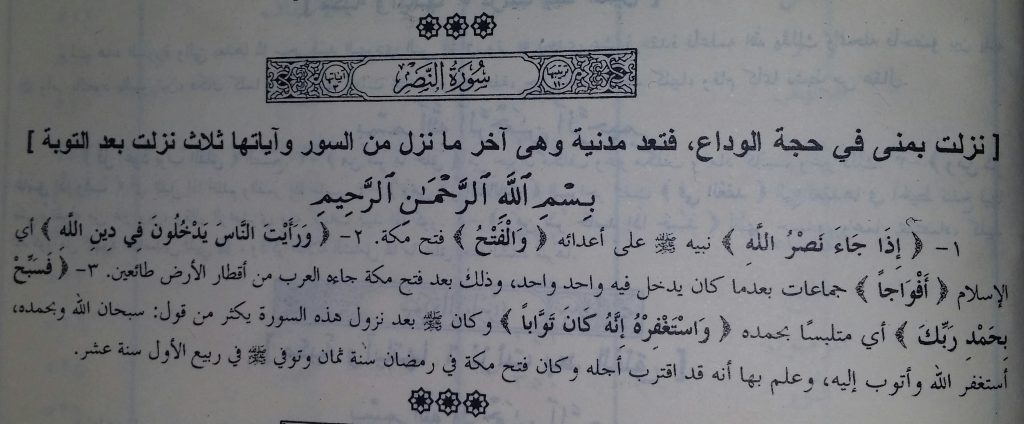 سُورَةُ النَّصْرِ
[ نزلت بمنى في حجة الوداع، فتعد مدنية وهى آخر ما نزل من السور وآياتها ثلاث نزلت بعد التوبة ]
بِسْمِ اللَّهِ الرَّحْمَٰنِ الرَّحِيمِ
١- ﴿ إِذَا جَاءَ نَصْرُ اللَّهِ ﴾ نبيه ﷺ على أعدائه ﴿ وَالْفَتْحُ ﴾ فتح مكة. ٢- ﴿ وَرَأَيْتَ النَّاسَ يَدْخُلُونَ فِي دِينِ اللَّهِ ﴾ أي
الإسلام ﴿ أَفْوَاجاً ﴾ جماعات بعدما كان يدخل فيه واحد واحد، وذلك بعد فتح مكة جاءه العرب من أقطار الأرض طائعين. ٣- ﴿ فَسَبِّحْ
بِحَمْدِ رَبِّكَ ﴾ أي متلبسًا بحمده ﴿ وَاسْتَغْفِرْهُ إِنَّهُ كَانَ تَوَّاباً ﴾ وكان ﷺ بعد نزول هذه السورة يكثر من قول: سبحان الله وبحمده،
أستغفر الله وأتوب إليه، وعلم بها أنه قد اقترب أجله وكان فتح مكة في رمضان سنة ثمان وتوفي ﷺ في ربيع الأول سنة عشر.